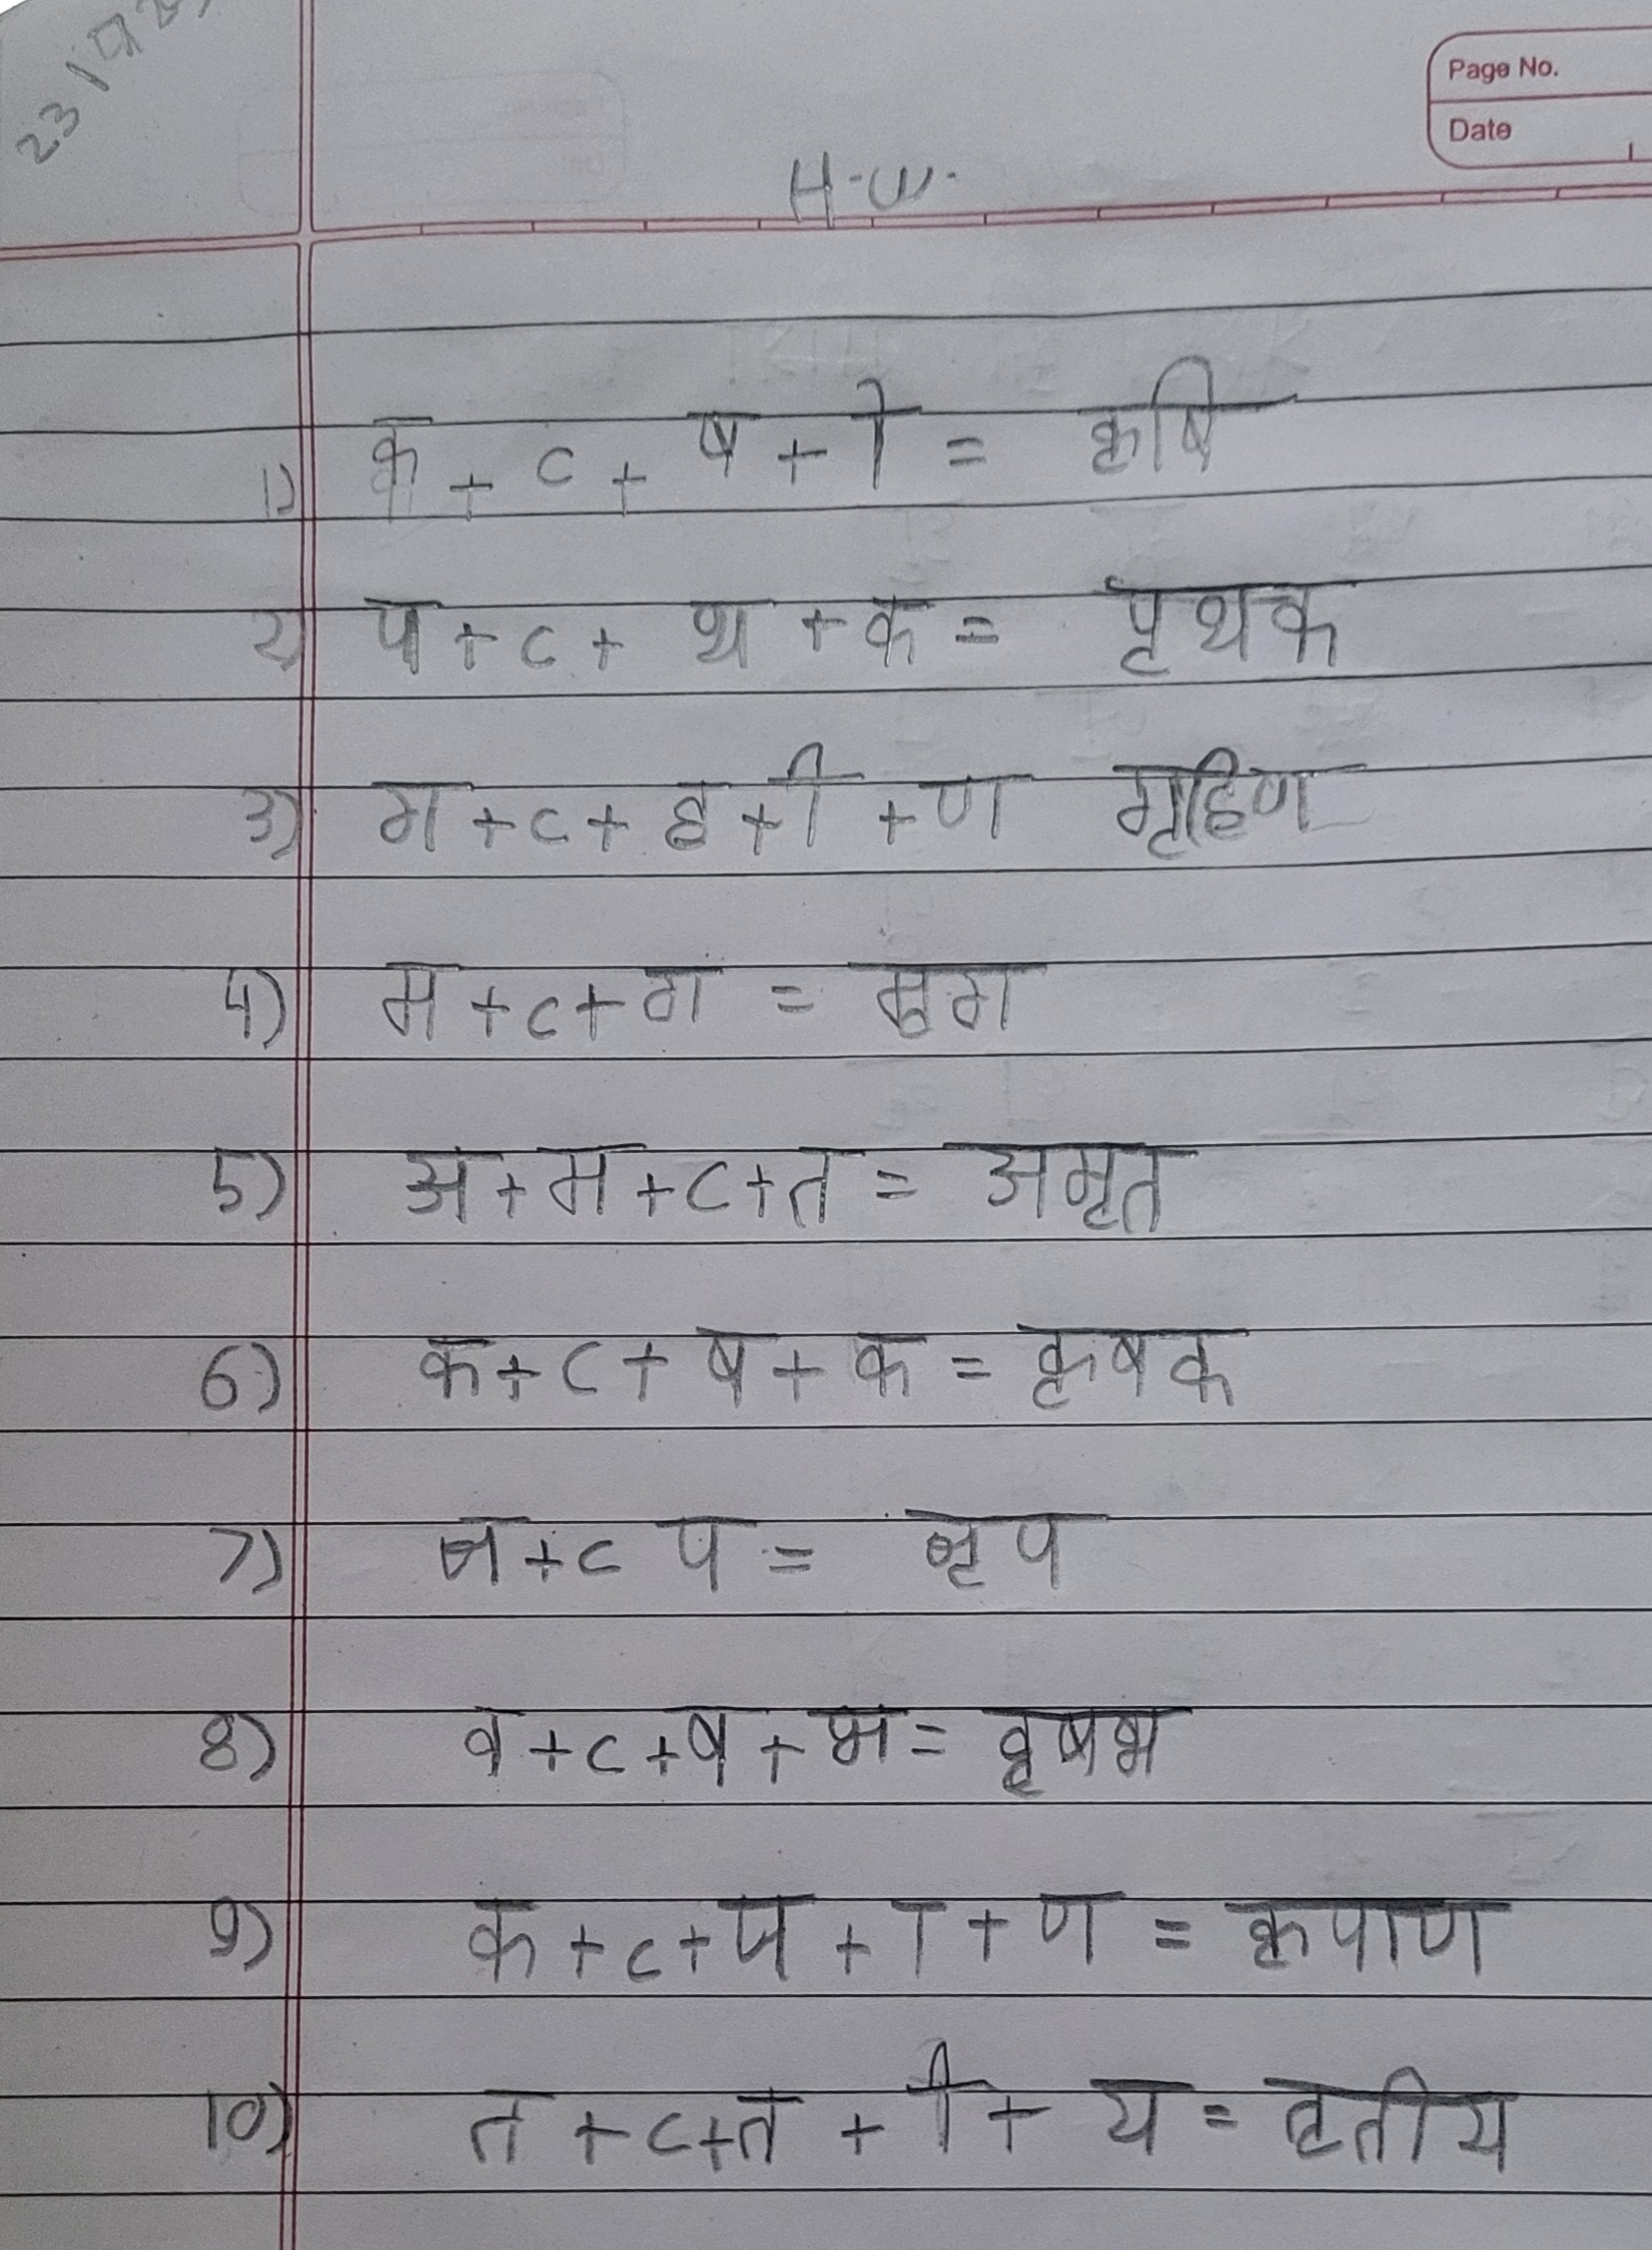 Page No.
Date
H.W.
1) क + ृ + ष + ि = कृषि
2) प + ृ + थ + क = पृथक
3) ग + ृ + ह + ि + ण गृहिण
4) म + ृ + ग = मृग
5) अ + म + ृ + त = अमृत
6) क + ृ + ष + क = कृषक
7) न + ृ प = नृप
8) व + ृ + ष + भ = वृषभ
9) क + ृ + प + ा + ण = कृपाण
10) त + ृ + त + ी + य = तृतीय